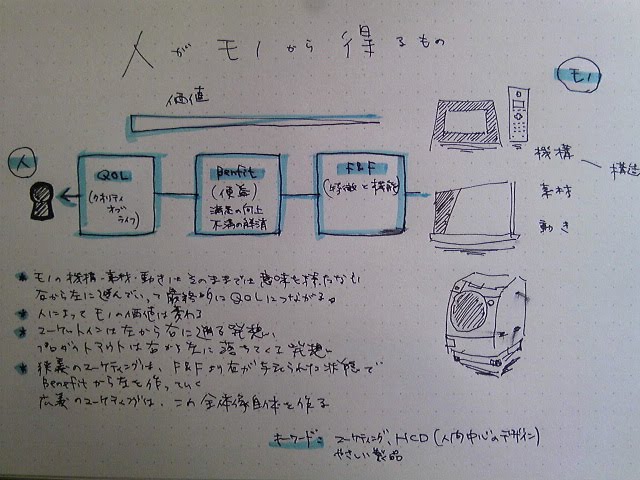 人がモノから得るもの
モノ
価値
人
QOL
(クオリティ
オブ
ライフ)
Benefit
(便益)
満足の向上
不満の解消
F&F
(特徴と機能)
機構
構造
素材
動き
* モノの機構・素材・動きはそのままでは意味を持たない
右から左に進んでいって最終的にQOLにつながる。
* 人によってモノの価値は変わる
* マーケットインは左から右に遡る発想い
プロダクトアウトは右から左に落ちてくる発想い
* 狭義のマーケティングは、F&Fより右が与えられた状態で
Benefitから左を作っていく
広義のマーケティングは、この全体像自体を作る
キーワード: マーケティング、HCD(人間中心のデザイン)
やさしい製品